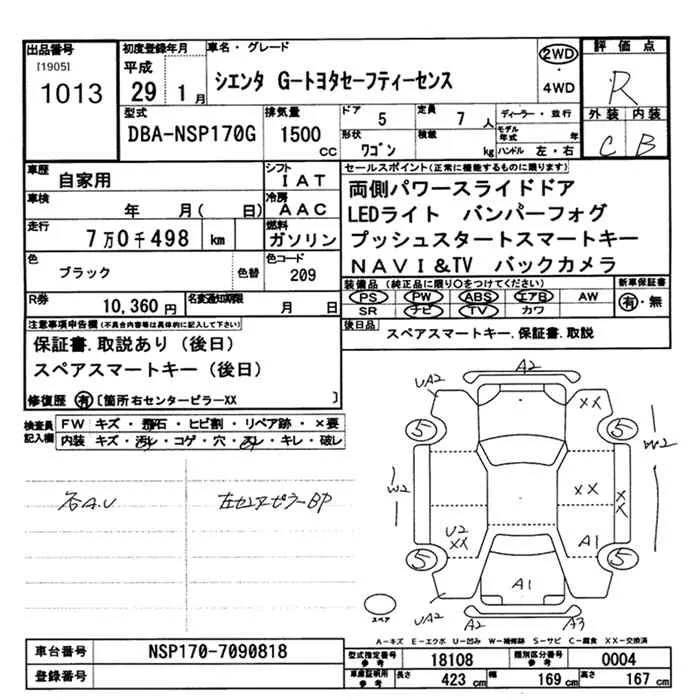 出品番号 初度登録年月 車名・グレード 2WD 評価点
[1905] 平成 シエンタ G-トヨタセーフティーセンス ・ R
1013 29 1月 4WD
型式 排気量 ドア 定員 ディーラー・並行 外装 内装
DBA-NSP170G 1500 CC 5 7人 モデル年式 年 C B
形状 ワゴン 積載 kg ハンドル 左・右
車歴 自家用 シフト IAT セールスポイント(正常に機能するものに限ります)
車検 年 月( 日) 冷房 AAC 両側パワースライドドア
走行 7万0千498 km 燃料 ガソリン LEDライト バンパーフォグ
色 ブラック 色替 色コード 209 プッシュスタートスマートキー
NAVI&TV バックカメラ
R券 10,360円 名変通知期限 月 日 装備品(純正品に限り○をつけてください) 新車保証書
PS PW ABS エアB AW 有・無
SR ナビ TV カワ
注意事項申告欄(不具合内容等は具体的に記入して下さい) 後日品 スペアスマートキー.保証書.取説
保証書.取説あり(後日)
スペアスマートキー(後日)
修復歴 有〔箇所右センターピラーXX 〕
検査員記入欄 FW キズ・飛石・ヒビ割・リペア跡・×要
内装 キズ・汚れ・コゲ・穴・スレ・キレ・破レ
A2
UA2 XX
5 5
W2 W2
XX XX
U2 XX A1
5 5
A1
UA2 A2 A3
スペア
A-キズ E-エクボ U-凹み W-補修跡 S-サビ C-腐食 XX-交換済
車台番号 NSP170-7090818 型式指定番号 参考 18108 類別区分番号 参考 0004
登録番号 車庫証明用 参考 長さ 423 cm 幅 169 cm 高さ 167 cm